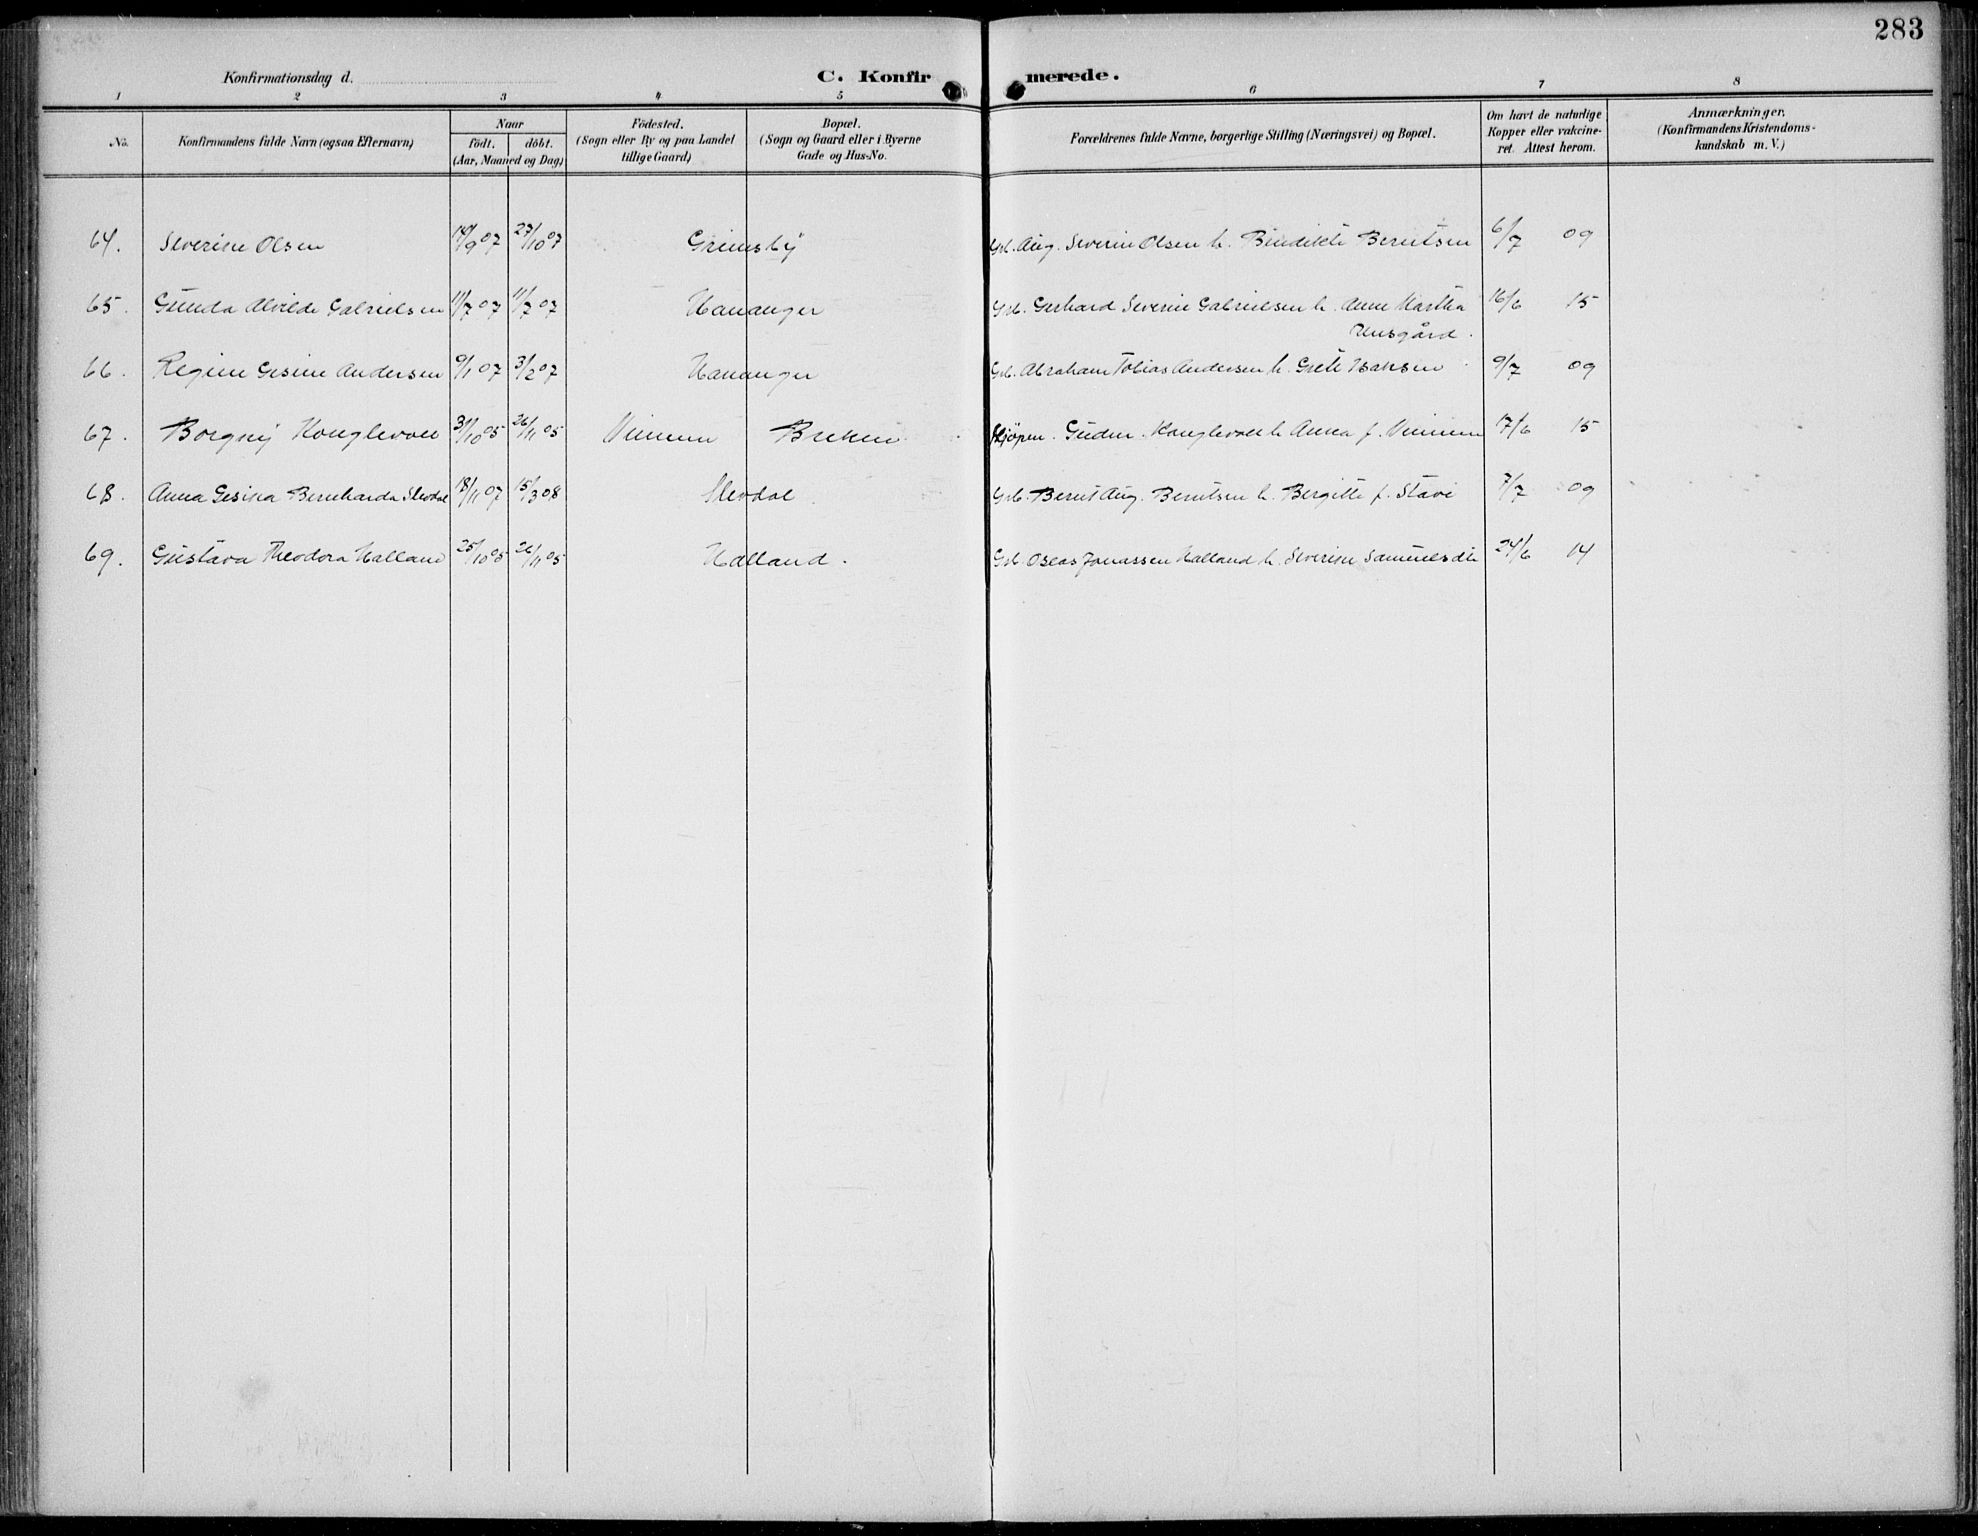 283
Konfirmationsdag d. C. Konfirmerede.
1 2 3 4 5 6 7 8
No. Konfirmandens fulde Navn (ogsaa Efternavn) Naar födt. döbt. (Aar, Maaned og Dag) Födested. (Sogn eller By og paa Landet tillige Gaard) Bopæl. (Sogn og Gaard eller i Byerne Gade og Hus-No. Forældrenes fulde Navne, borgerlige Stilling (Næringsvei) og Bopæl. Om havt de naturlige Kopper eller vakcineret. Attest herom. Anmærkninger. (Konfirmandens Kristendomskundskab m. V.)
64. Severine Olsen 14/9 07 27/10 07 Grimsby Grb. Aug. Severin Olsen h. Bendikte Berntsen 6/7 09
65. Gunda Alvilde Gabrielsen 11/7 07 11/7 07 Hananger Grb. Gerhard Severin Gabrielsen h. Anne Martha
16/6 15
66. Regine Gesine Andersen 9/1 07 3/2 07 Hananger Grb. Abraham Tobias Andersen h. Grete Isaksen 9/7 09
67. Borgny Konglevoll 31/10 05 26/11 05 Vinnem Brekne Kjøpm. Gudm. Konglevoll h. Anna f. Vinnem 17/6 15
68. Anna Gesina Bernharda Slevdal 18/11 07 15/3 08 Slevdal. Grb. Bernt Aug. Berntsen h. Bergitte f. Stave 7/7 09
69. Gustava Theodora Halland 25/10 05 26/11 05 Halland. Grb. Oseas Jonassen Halland h. Severine Samuelsdtr 24/6 14